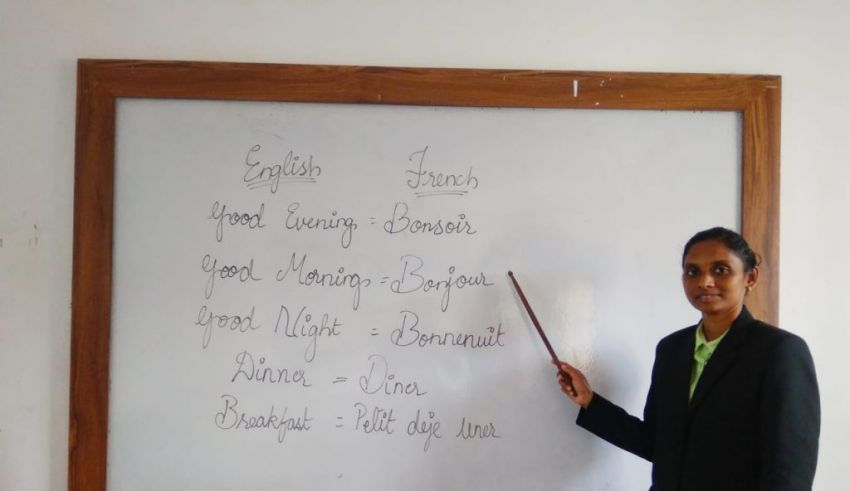 English French
Good Evening = Bonsoir
Good Morning = Bonjour
Good Night = Bonnenuit
Dinner = Diner
Breakfast = Petit deje uner